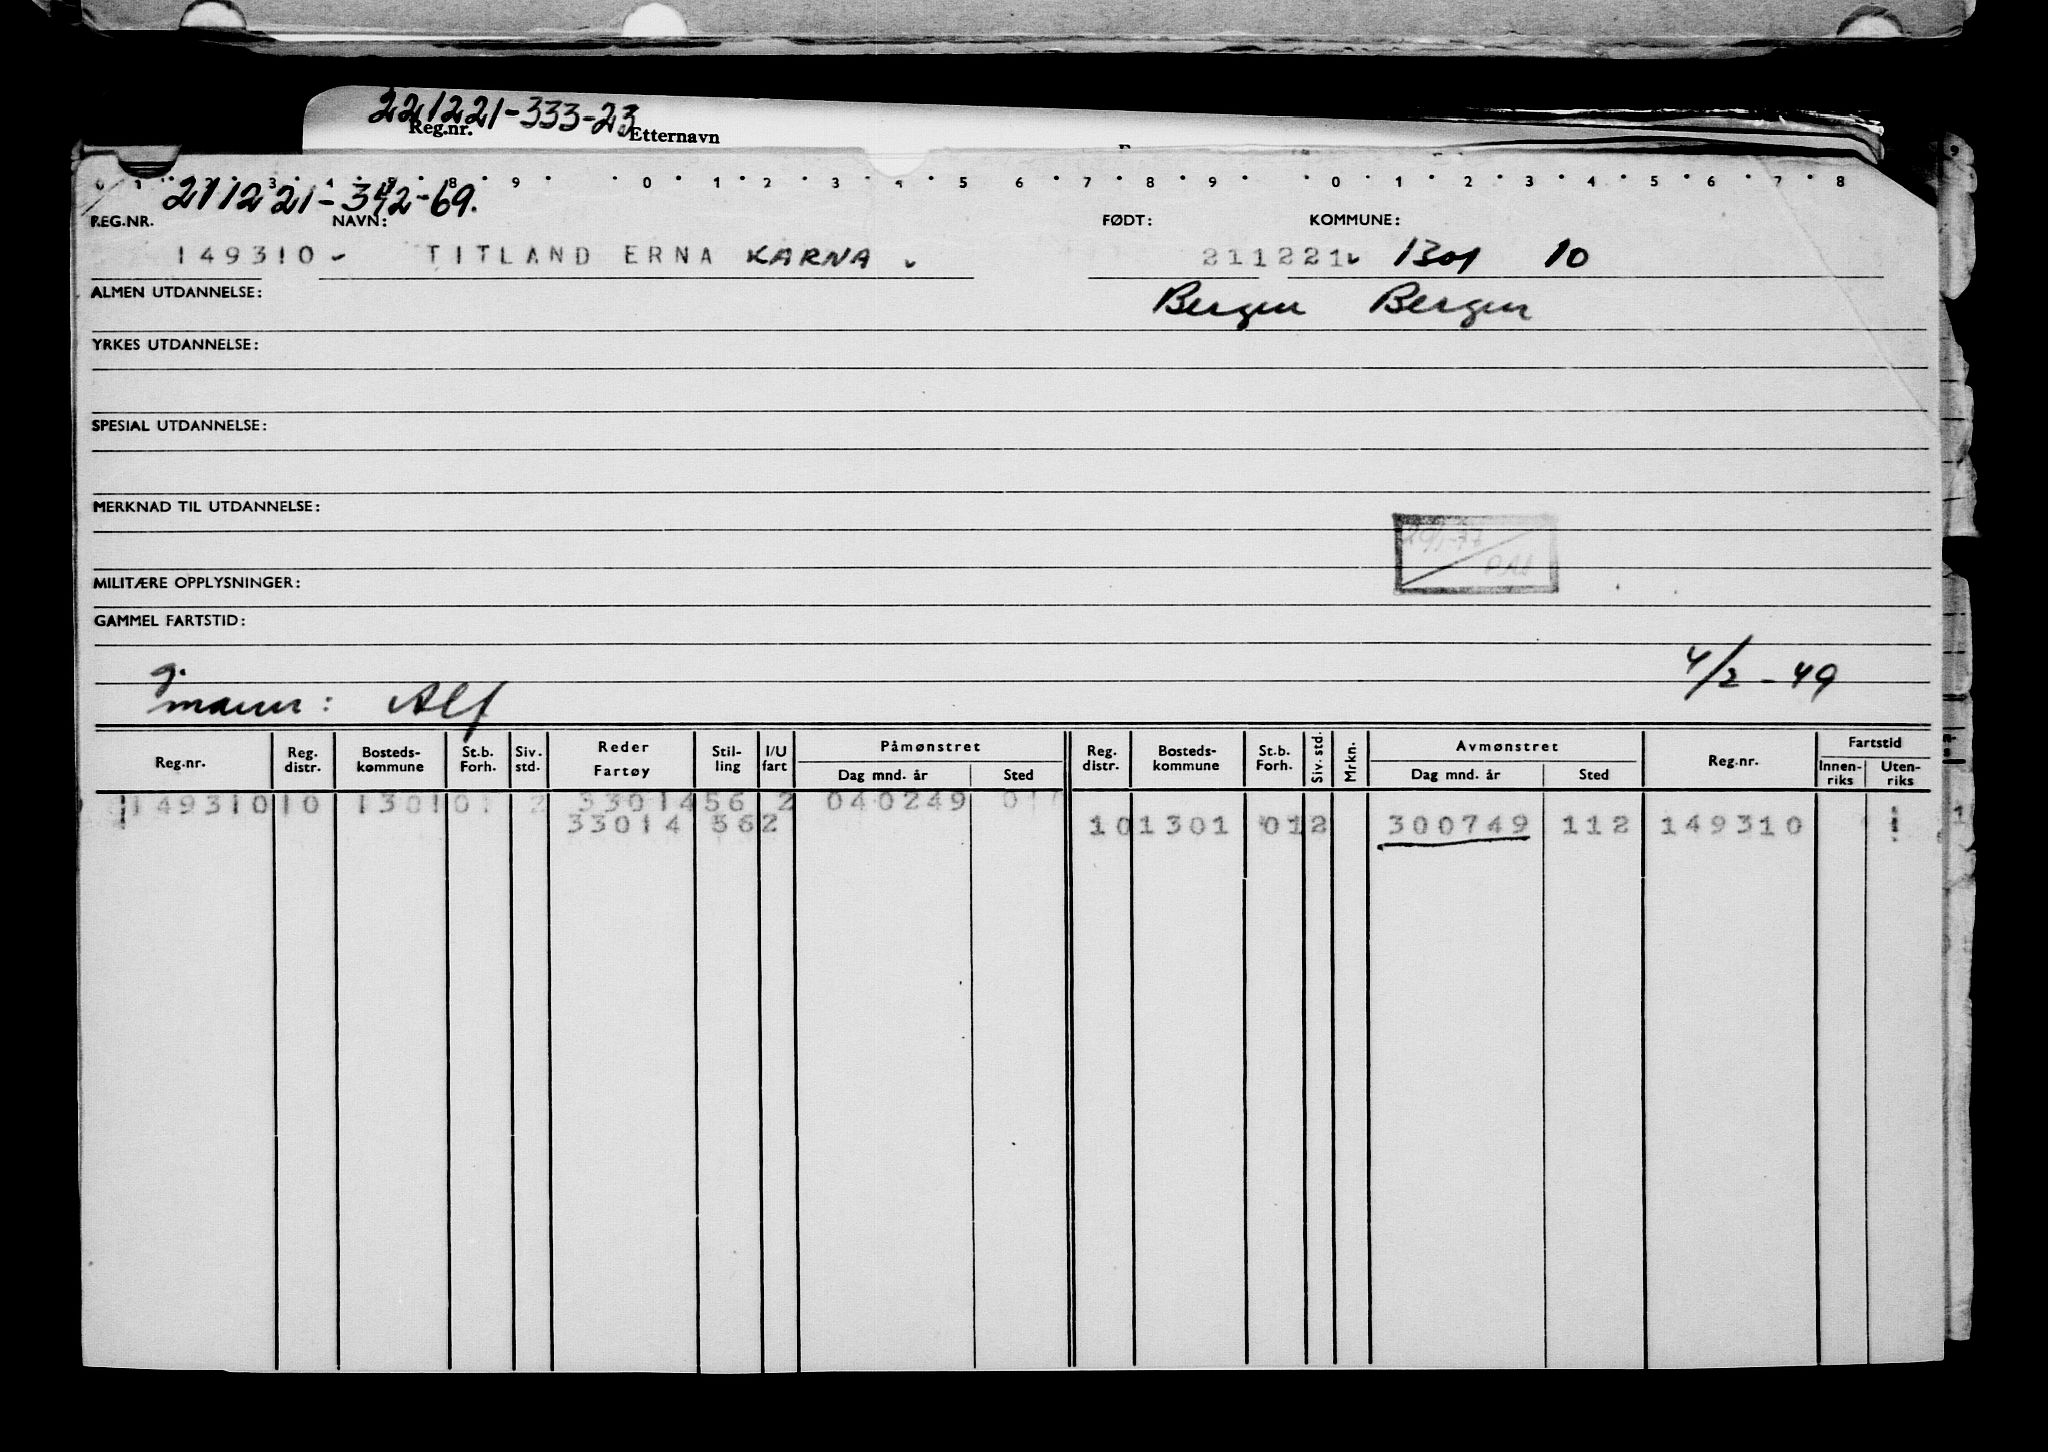 221221-333-23
Reg.nr. Etternavn
3 9 0 1 2 3 4 5 6 7 8 9 0 1 2 3 4 5 6 7 8
211221-342-69.
REG.NR. NAVN: FØDT: KOMMUNE:
149310 TITLAND ERNA KARNA 211221 1301 10
ALMEN UTDANNELSE: Bergen Bergen
YRKES UTDANNELSE:
SPESIAL UTDANNELSE:
MERKNAD TIL UTDANNELSE:
MILITÆRE OPPLYSNINGER:
GAMMEL FARTSTID:
g. mann: Alf 4/2-49
Reg.nr. Reg. distr. Bosteds- kommune St.b. Forh. Siv. std. Reder Fartøy Stil- ling I/U fart Påmønstret Dag mnd. år Sted Reg. distr. Bosteds- kommune St.b. Forh. Siv. std. Mrkn. Avmønstret Dag mnd. år Sted Reg.nr. Fartstid Innen- riks Uten- riks
149310 10 1301 01 2 33014 56 2 040249
33014 56 2 10 1301 01 2 300749 112 149310